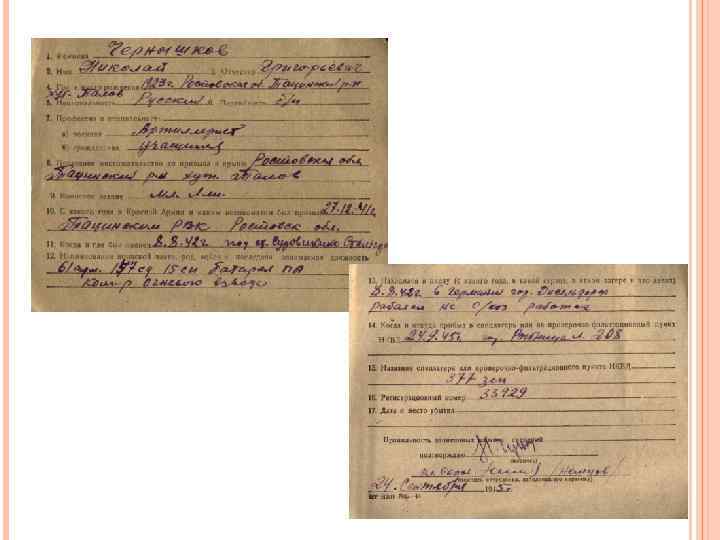 1. Фамилия Чернышков
2. Имя Николай 3. Отчество Григорьевич
4. Год и место рождения 1923г. Ростовская об. Тацинский р-н
хут. Талов
5. Национальность Русский 6. Партийность б/п
7. Профессия и специальность:
а) военная Артиллерист
б) гражданская учащийся
8. Постоянное местожительство до призыва в армию Ростовская обл
Тацинский р-н хут. Талов
9. Воинское звание мл. Л-т
10. С какого года в Красной Армии и каким военкоматом был призван 27.12.41г
Тацинским РВК Ростовск обл.
11. Когда и где был пленен 8.8.42г под
12. Наименование воинской части, род войск и последняя занимаемая должность
61 арм. 157 сд 15 сп Батарея ПА
Ком-р огневого взвода
13. Находился в плену (с какого года, в какой стране, в каком лагере и что делал)
8.8.42г в Германии гор. Дюсельдорф
работал на работах
14. Когда и откуда прибыл в спецлагерь или на проверочно-фильтрационный пункт
НКВД 24.9.45г. л. 208
15. Название спецлагеря или проверочно-фильтрационного пункта НКВД
377 зсп
16. Регистрационный номер 33929
17. Дата и место убытия
Правильность записанных сведений
подтверждаю
(подпись)
24. Сентября 1945г.